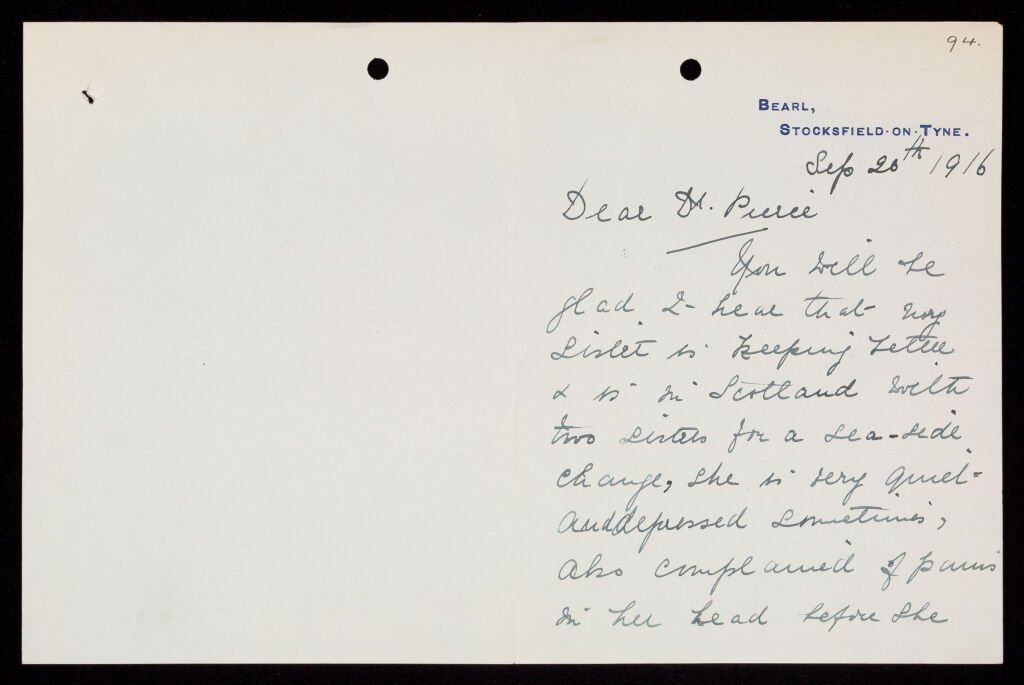 94.
BEARL,
STOCKSFIELD-ON-TYNE.
Sep 20th 1916
Dear Dr. Pierce
You will be
glad to hear that my
Sister is keeping better
& is in Scotland with
two sisters for a sea-side
change, she is very quiet
and depressed sometimes,
also complained of pains
in her head before she